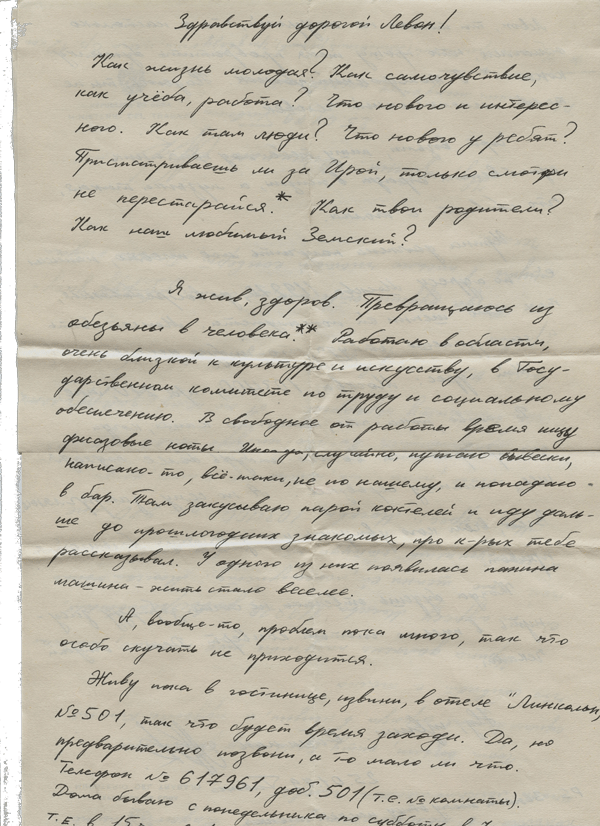 Здравствуй дорогой Левон!
Как жизнь молодая? Как самочувствие,
как учёба, работа? Что нового и интерес-
ного. Как там люди? Что нового у ребят?
Присматриваешь ли за Ирой, только смотри
не перестарайся.* Как твои родители?
Как наш любимый Земский?
Я жив, здоров. Превращаюсь из
обезьяны в человека.** Работаю в области,
очень близкой к культуре и искусству, в Госу-
дарственном комитете по труду и социальному
обеспечению. В свободное от работы время ищу
фразовые ноты. Иногда, случайно, путаю вывески,
написано-то, всё-таки, не по нашему, и попадаю
в бар. Там закусываю парой коктелей и иду даль-
ше до прошлогодних знакомых, про к-рых тебе
рассказывал. У одного из них появилась папина
машина - жить стало веселее.
А, вообще-то, проблем пока много, так что
особо скучать не приходится.
Живу пока в гостинице, извини, в отеле "Линкольн,
№ 501, так что будет время заходи. Да, но
предварительно позвони, а то мало ли что.
Телефон № 617961, доб. 501 (т.е. № комнаты).
Дома бываю с понедельника по субботу в
т.е. в 15